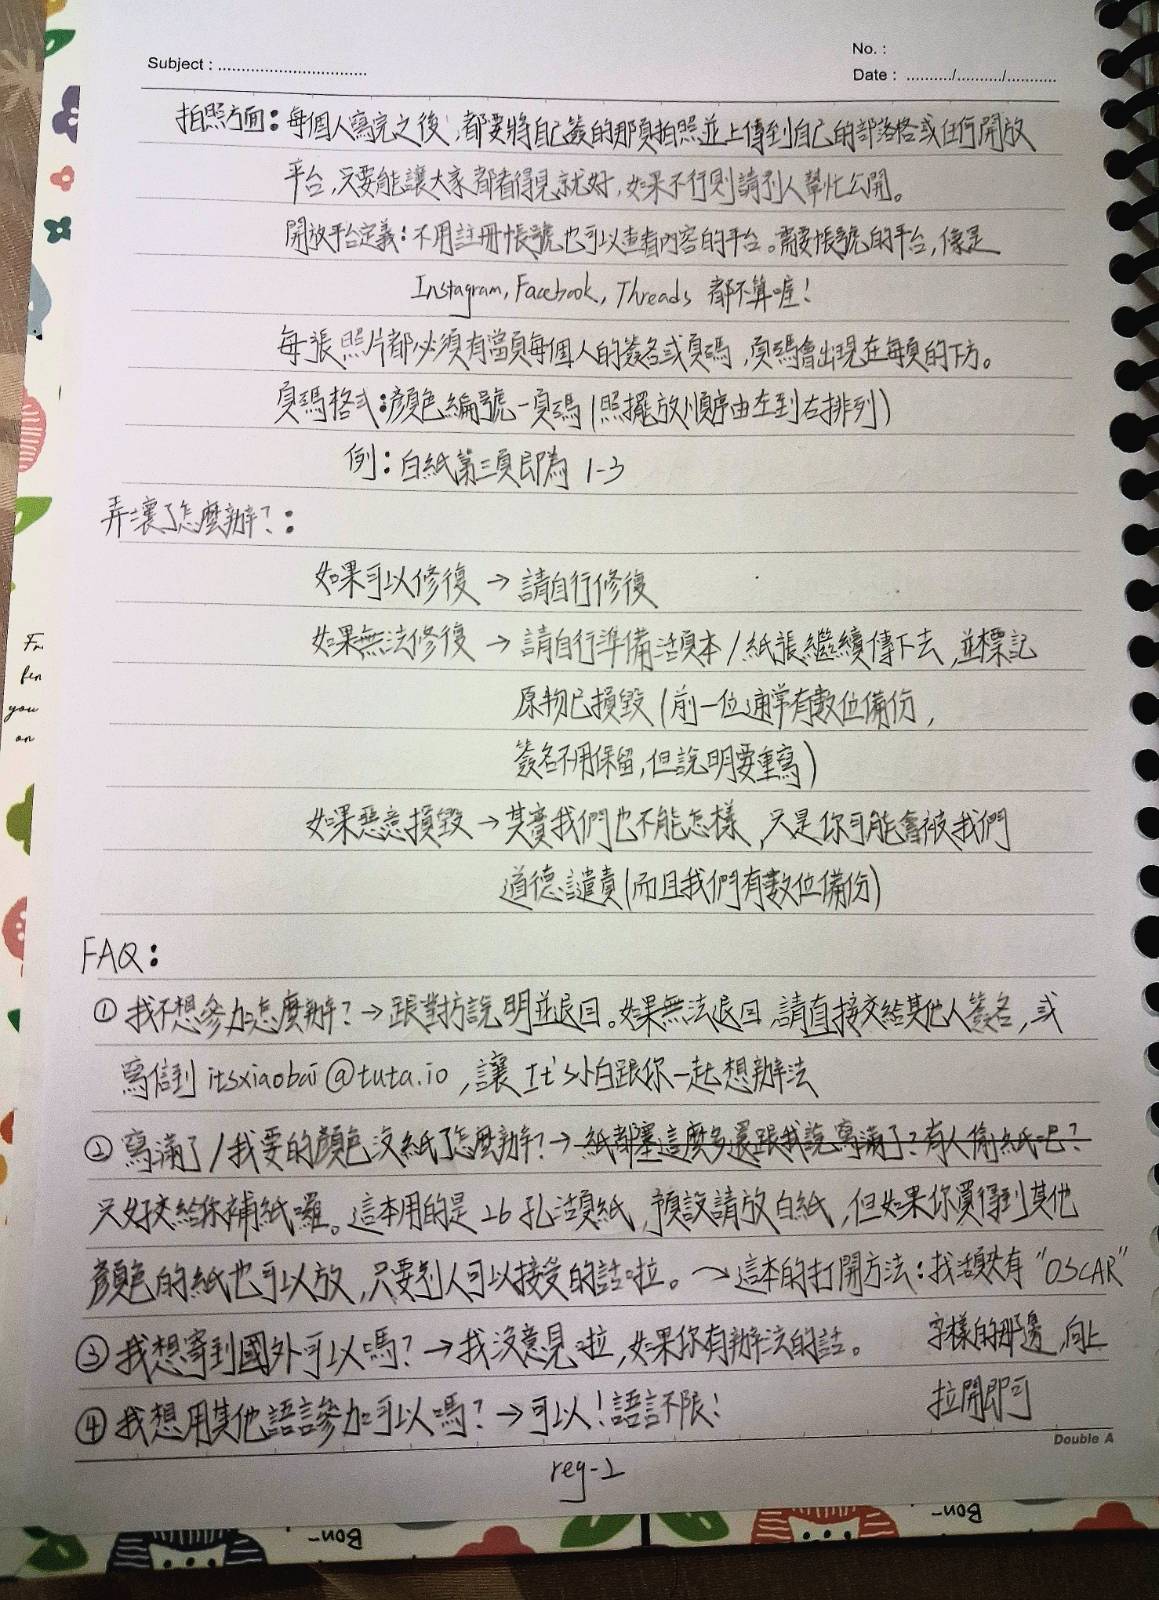 Subject : ................................
No. :
Date : ........../........../...........
拍照方面：每個人寫完之後，都要將自己簽的那頁拍照並上傳到自己的部落格或任何開放
平台，只要能讓大家都看得見就好，如果不行則請別人幫忙公開。
開放平台定義：不用註冊帳號也可以查看內容的平台。需要帳號的平台，像是
Instagram, Facebook, Threads 都不算喔！
每張照片都必須有當頁每個人的簽名或頁碼，頁碼會出現在每頁的下方。
頁碼格式：顏色編號-頁碼(照擺放順序由左到右排列)
例：白紙第三頁即為 1-3
弄壞了怎麼辦？：
如果可以修復 → 請自行修復
如果無法修復 → 請自行準備活頁本/紙張繼續傳下去，並標記
原物已損毀(前一位通常有數位備份，
簽名不用保留，但說明要重寫)
如果惡意損毀 → 其實我們也不能怎樣，只是你可能會被我們
道德譴責(而且我們有數位備份)
FAQ：
① 我不想參加怎麼辦？→ 跟對方說明並退回。如果無法退回，請直接交給其他人簽名，或
寫信到 itsxiaobai@tuta.io，讓 It's小白跟你一起想辦法
② 寫滿了/我要的顏色沒紙了怎麼辦？→ 紙都塞這麼多還跟我說寫滿了？有人偷紙吧？
只好交給你補紙囉。這本用的是 26 孔活頁紙，預設請放白紙，但如果你買得到其他
顏色的紙也可以放，只要別人可以接受的話啦。→ 這本的打開方法：找活頁夾有 "OSCAR"
字樣的那邊，向上
拉開即可
③ 我想寄到國外可以嗎？→ 我沒意見啦，如果你有辦法的話。
④ 我想用其他語言參加可以嗎？→ 可以！語言不限！
Double A
reg-2
Bon-
Bon-
you
on